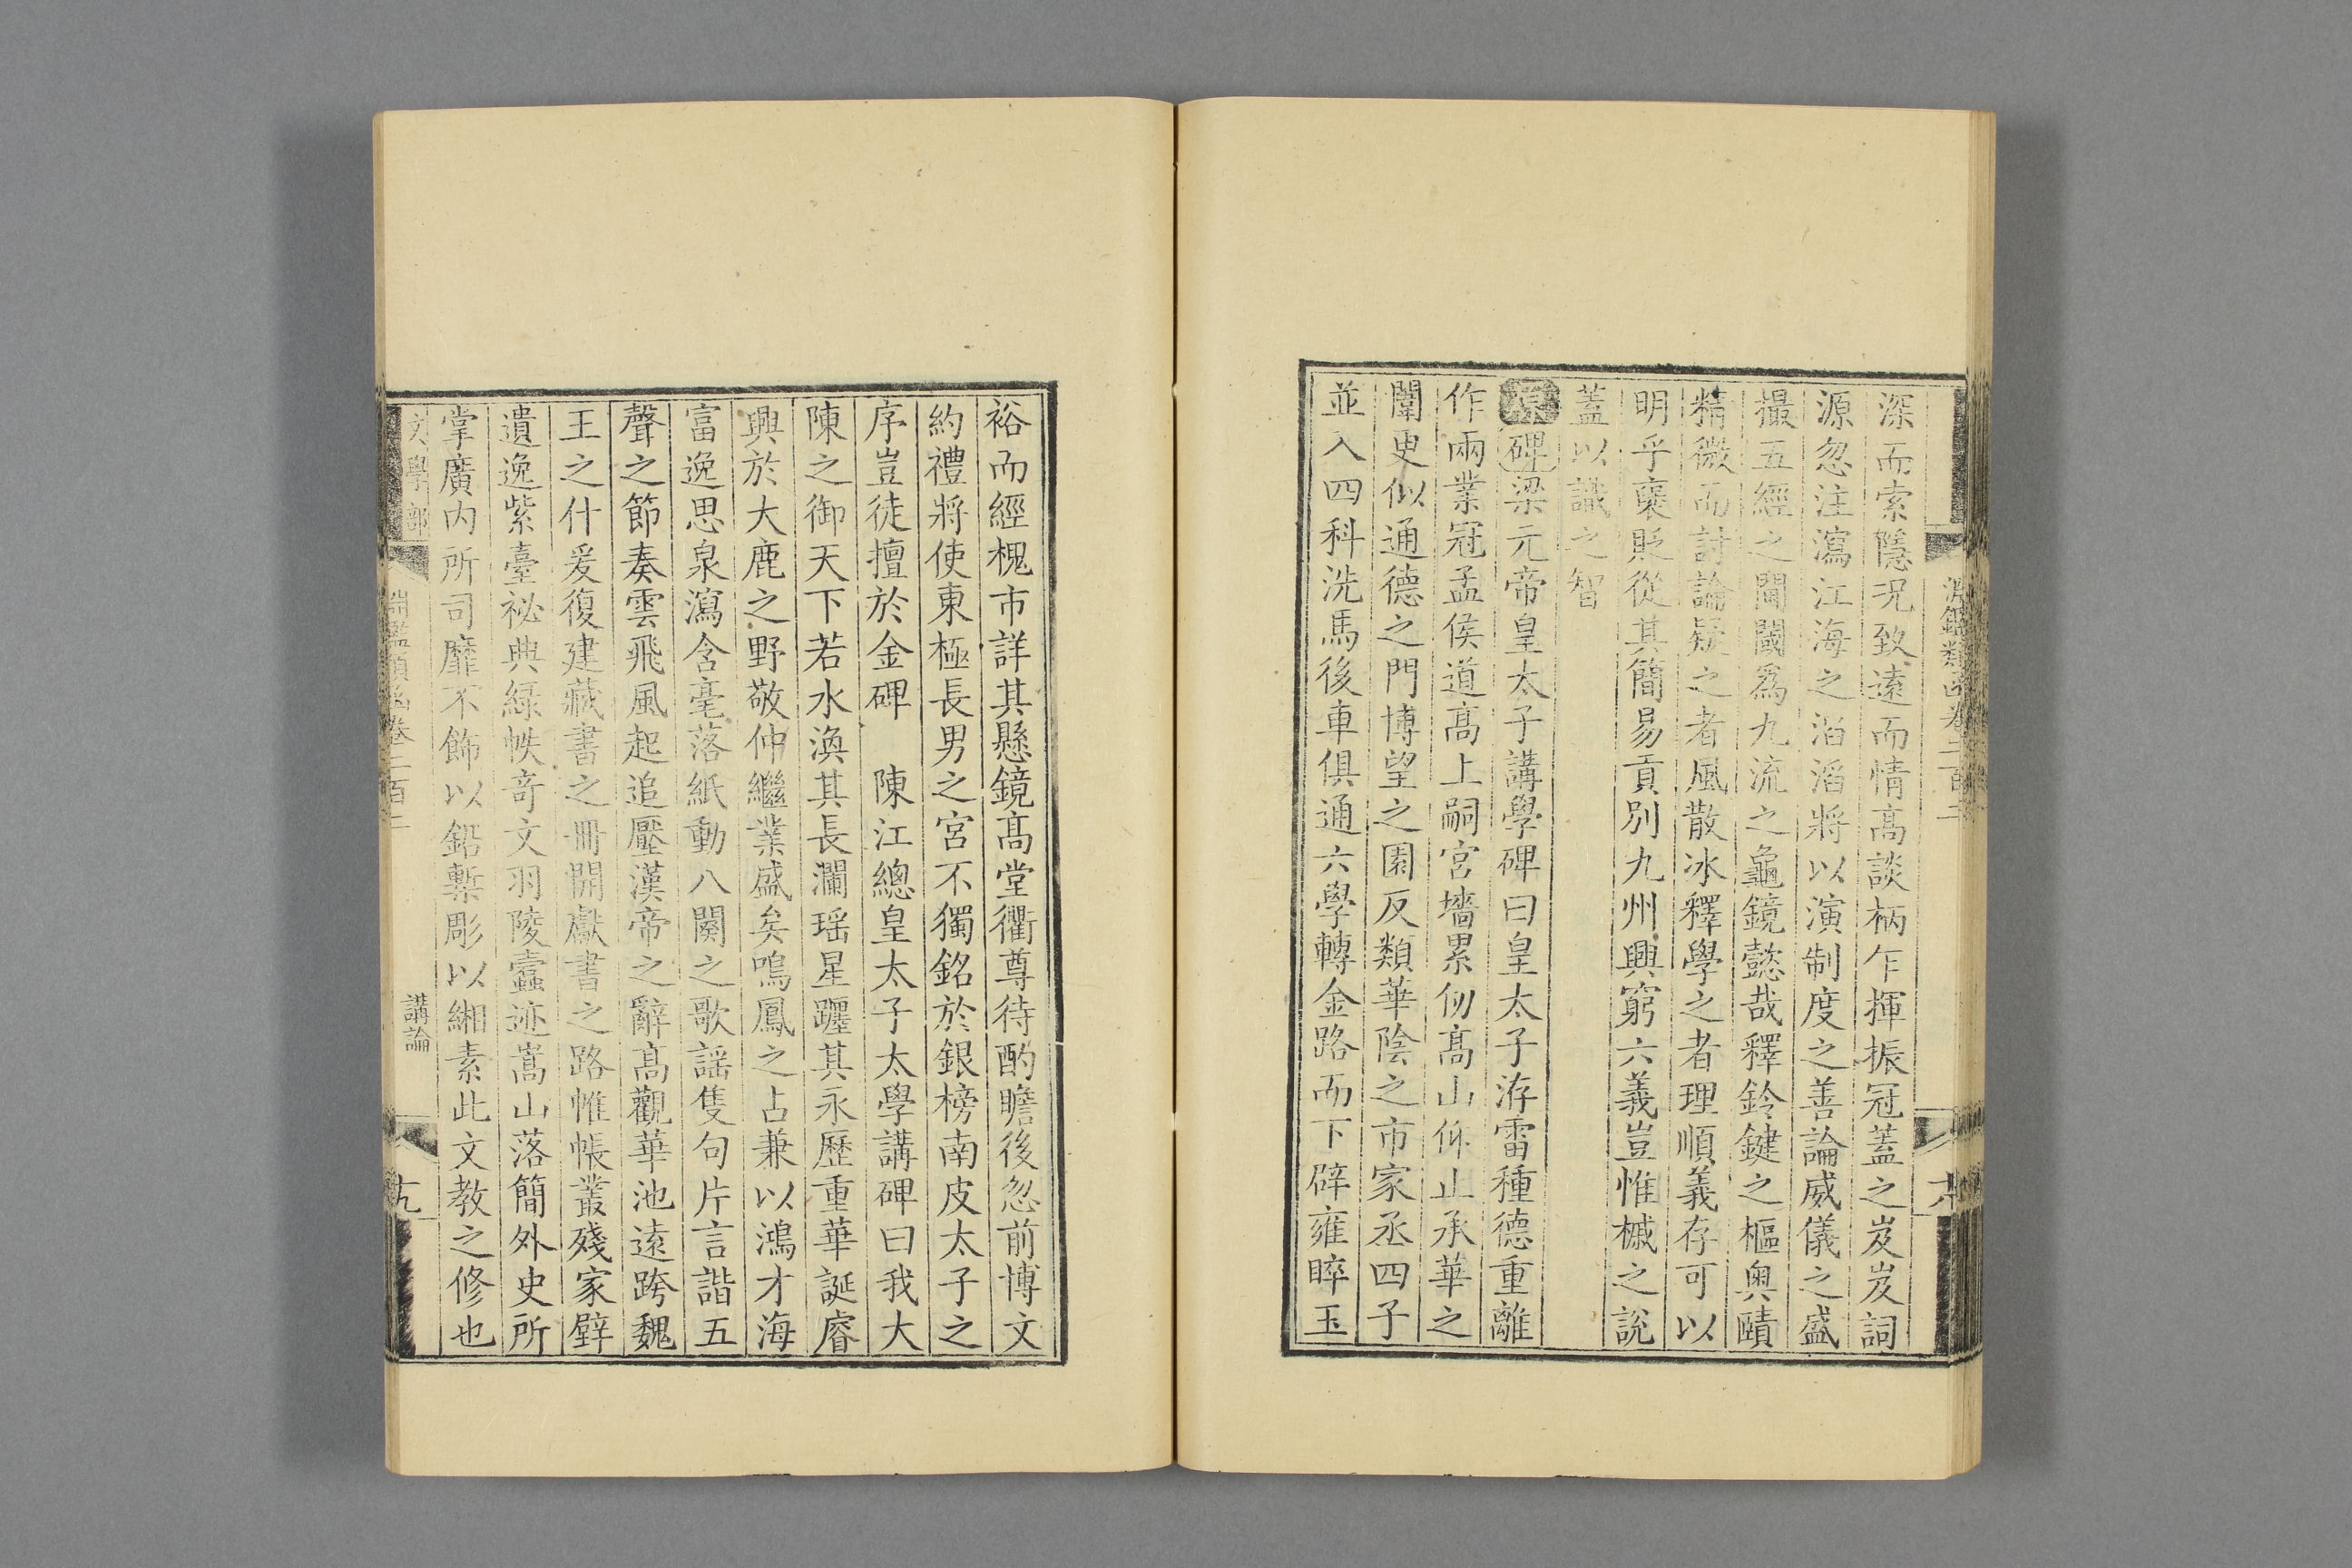 淵鑑類函卷二百二
深而索隱況致遠而情高談柄乍揮振冠蓋之岌岌詞
源忽注瀉江海之滔滔將以演制度之善論威儀之盛
撮五經之閫閾爲九流之龜鏡懿哉釋鈐鍵之樞奧賾
精微而討論疑之者風散冰釋學之者理順義存可以
明乎褒貶從其簡易貢別九州興窮六義豈惟槭之說
蓋以識之智
原碑梁元帝皇太子講學碑曰皇太子洊雷種德重離
作兩業冠孟侯道高上嗣宮墻累仞高山仰止承華之
闈更似通德之門博望之園反類華陰之市家丞四子
並入四科洗馬後車俱通六學轉金路而下辟雍晬玉
裕而經槐市詳其懸鏡高堂衢尊待酌瞻後忽前博文
約禮將使東極長男之宮不獨銘於銀榜南皮太子之
序豈徒擅於金碑 陳江總皇太子太學講碑曰我大
陳之御天下若水渙其長瀾瑶星躔其永歷重華誕睿
興於大鹿之野敬仲繼業盛矣鳴鳳之占兼以鴻才海
富逸思泉瀉含毫落紙動八闋之歌謡隻句片言諧五
聲之節奏雲飛風起追壓漢帝之辭高觀華池遠跨魏
王之什爰復建藏書之冊開獻書之路帷帳叢殘家壁
遺逸紫臺祕典緑帙奇文羽陵蠹迹嵩山落簡外史所
掌廣内所司靡不飾以鉛槧彫以緗素此文教之修也
文學部 淵鑑類函卷二百二 講論 十九